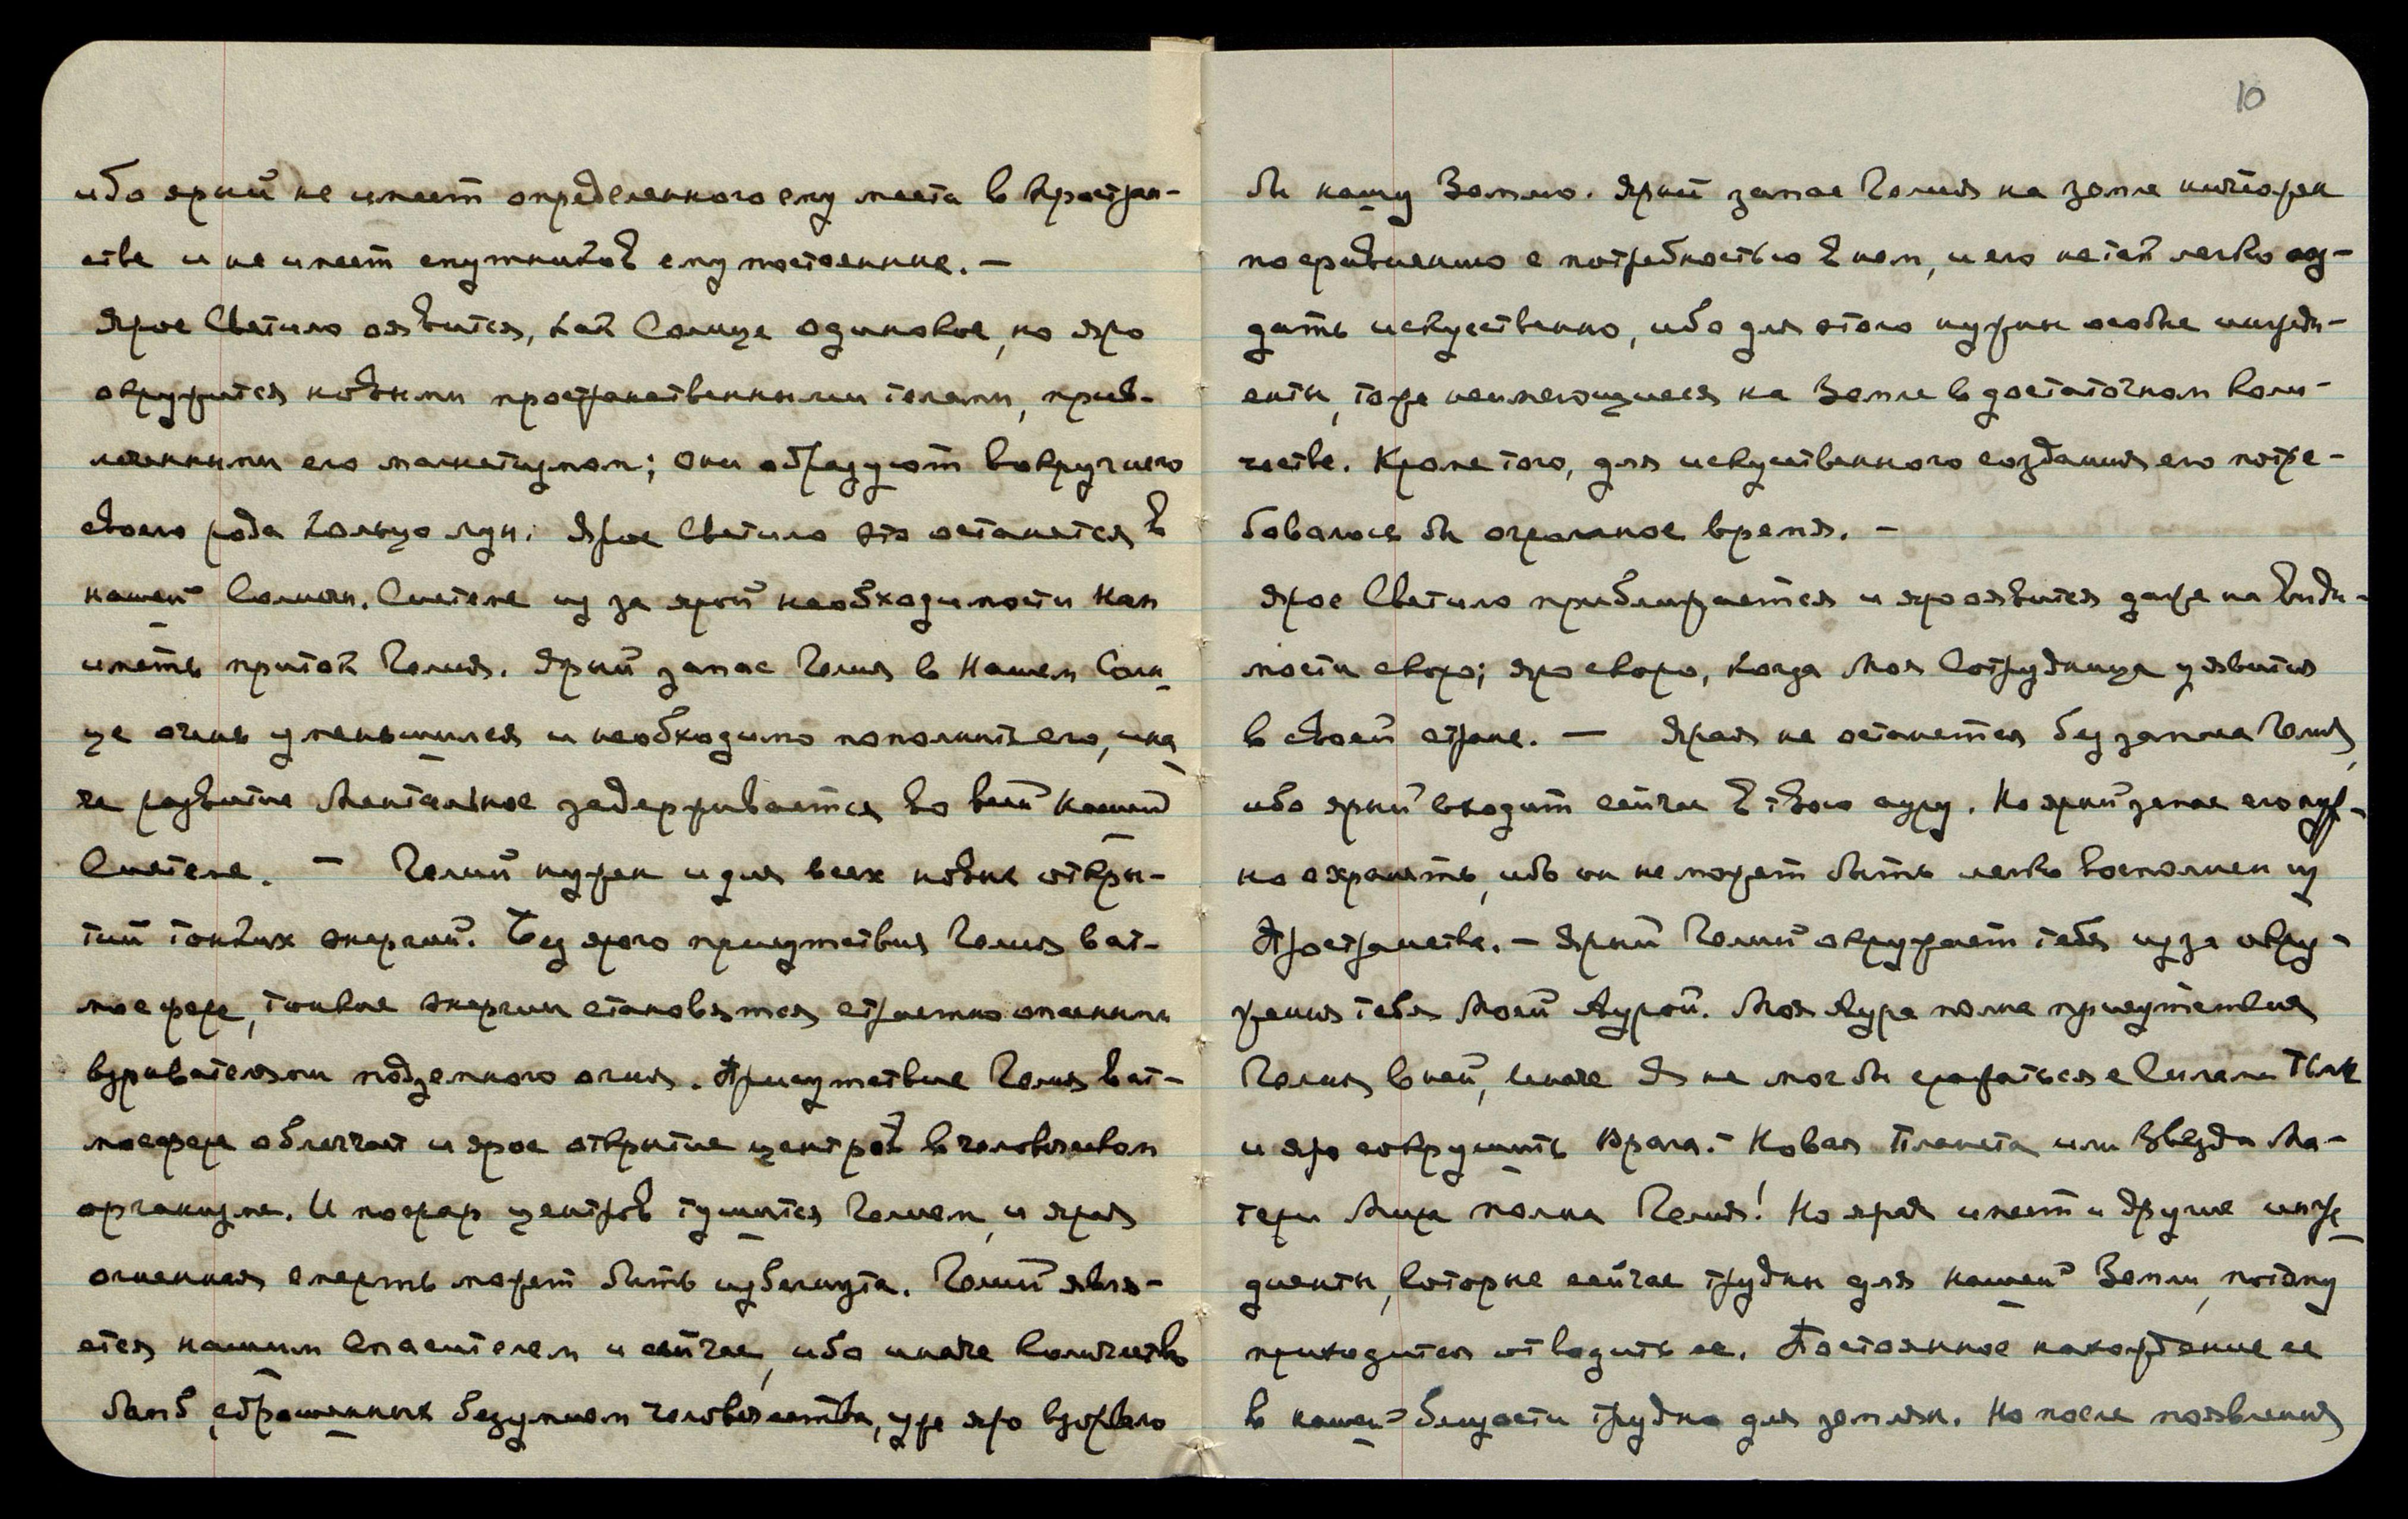 ибо ярый не имеет определенного ему места в Простран-
стве и не имеет спутников ему постоянные. —
Ярое Светило оявится, как Солнце одинокое, но яро
окружится новыми пространственными телами, прив-
леченными его магнетизмом; они образуют вокруг него
своего рода кольцо лун. Ярое Светило это останется в
нашей Солнечн. Системе из за ярой необходимости нам
иметь приток Гелия. Ярый запас Гелия в Нашем Солн-
це очень уменьшился и необходимо пополнить его, ина
че развитие Ментальное задерживается во всей нашей
Системе. — Гелий нужен и для всех новых откры-
тий тонких энергий. Без ярого присутствия Гелия в ат-
мосфере, тонкие энергии становятся страстно опасными
взрывателями подземного огня. Присутствие Гелия в ат-
мосфере облегчает и ярое открытие центров в человеческом
организме. И пожар центров тушится Гелием, и ярая
огненная смерть может быть избегнута. Гелий явля-
ется нашим Спасителем и сейчас, ибо иначе количество
бомб, сброшенных безумием человечества, уже яро взорвало
10
бы нашу Землю. Ярый запас Гелия на земле ничтожен
по сравнению с потребностью в нем, и его не так легко соз-
дать искусственно, ибо для этого нужны особые ингреди-
енты, тоже неимеющиеся на Земле в достаточном коли-
честве. Кроме того, для искусственного создания его потре-
бовалось бы огромное время. —
Ярое Светило приближается и яро оявится даже на види-
мости скоро; яро скоро, когда Моя Сотрудница уявится
в своей стране. — Ярая не останется без запаса Гелия,
ибо ярый входит сейчас в твою ауру. Но ярый запас его нуж-
но охранять, ибо он не может быть легко восполнен из
Пространства. — Ярый Гелий окружает тебя из за окру-
жения тебя Моей Аурой. Моя Аура полна присутствия
Гелия в ней, иначе Я не мог бы сражаться с Силами Тьмы
и яро сокрушить Врага. — Новая Планета или Звезда Ма-
тери Мира полна Гелия! Но ярая имеет и другие ингре
диенты, которые сейчас трудны для нашей Земли, потому
приходится отводить ее. Постоянное нахождение ее
в нашей близости трудно для землян. Но после появления